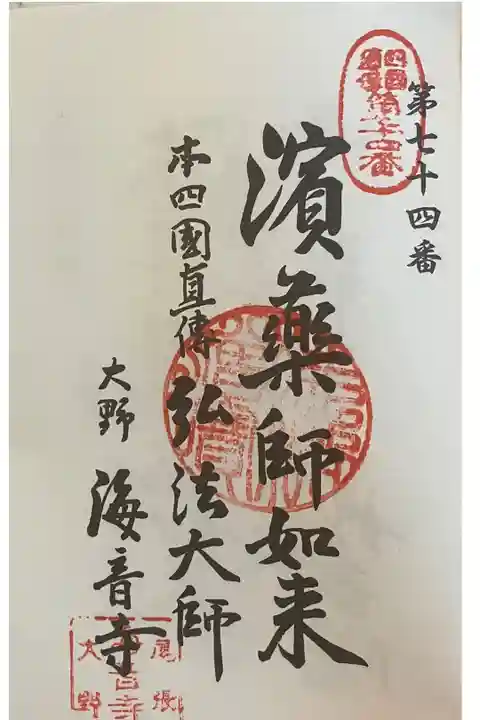 第七十四番
濱藥師如来
本四國直傳 弘法大師
大野 海音寺
四國
第七十四番
尾張
大野